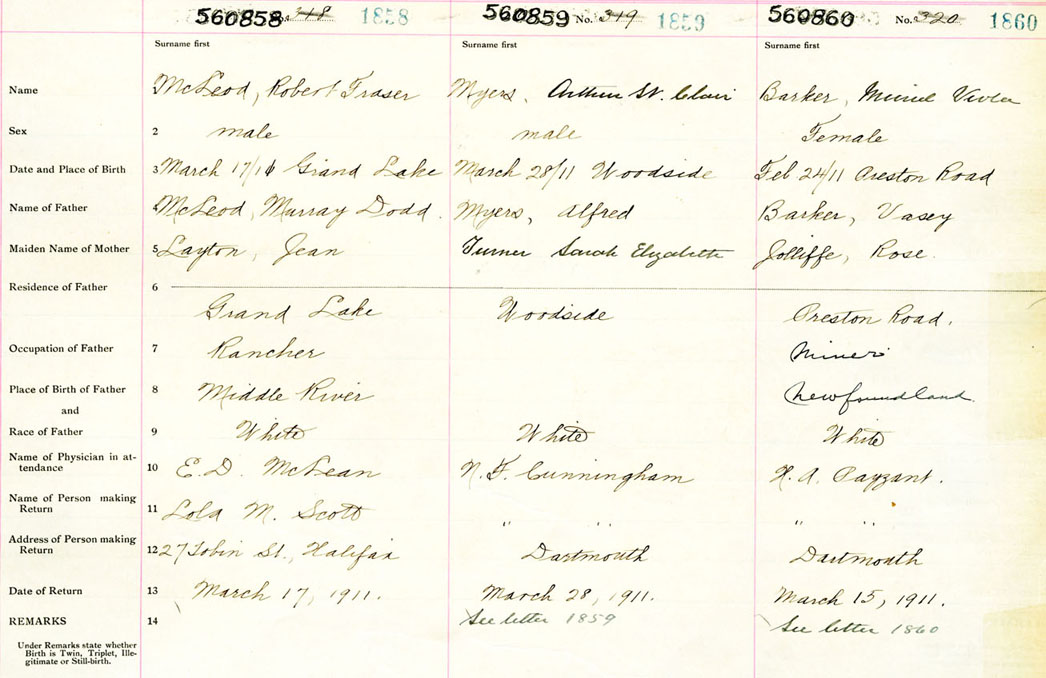 560858 No. 318 1858 560859 No. 319 1859 560860 No. 320 1860
Surname first Surname first Surname first
Name McLeod, Robert Fraser Myers, Arthur St. Clair Barker, Muriel Viola
Sex 2 male male Female
Date and Place of Birth 3 March 17/11 Grand Lake March 28/11 Woodside Feb 24/11 Preston Road
Name of Father 4 McLeod, Murray Dodd. Myers, Alfred Barker, Vasey
Maiden Name of Mother 5 Layton, Jean Turner Sarah Elizabeth Jolliffe, Rose.
Residence of Father 6
Grand Lake Woodside Preston Road.
Occupation of Father 7 Rancher Miner
Place of Birth of Father 8 Middle River Newfoundland.
and
Race of Father 9 White White White
Name of Physician in at-
tendance 10 E. D. McLean N. F. Cunningham H. A. Payzant.
Name of Person making
Return 11 Lola M. Scott " " " "
Address of Person making
Return 12 27 Tobin St., Halifax Dartmouth Dartmouth
Date of Return 13 March 17, 1911. March 28, 1911. March 15, 1911.
REMARKS 14 See letter 1859 See letter 1860
Under Remarks state whether
Birth is Twin, Triplet, Ille-
gitimate or Still-birth.